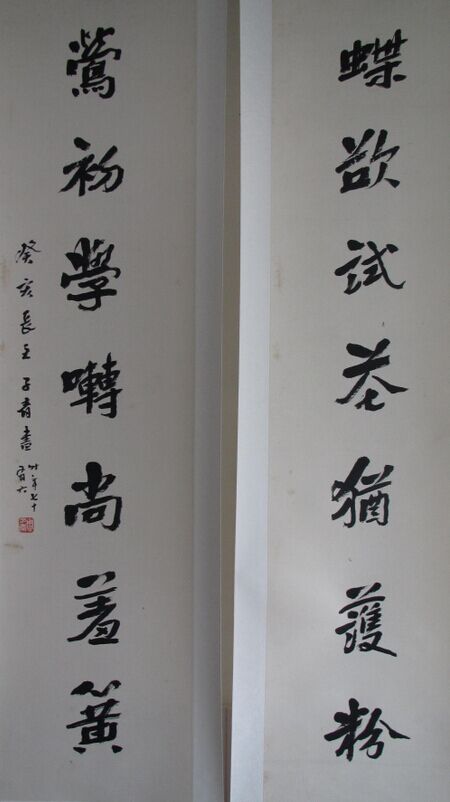 蝶欲試花猶護粉
鶯初學囀尚羞簧
癸亥長至子青書
時年七十
有六